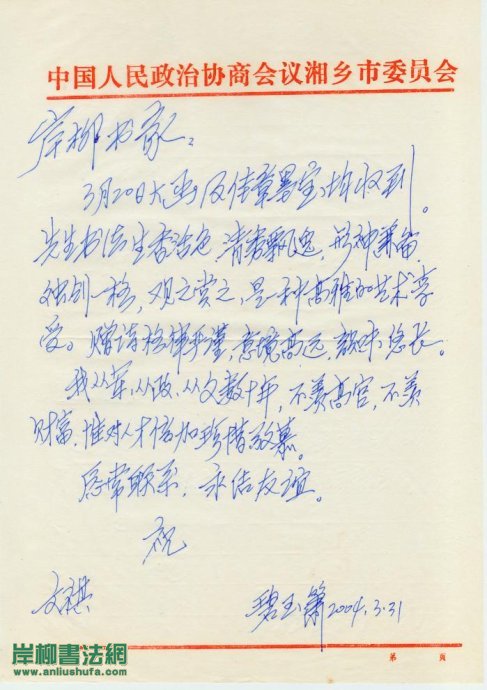 中国人民政治协商会议湘乡市委员会
岸柳书家：
3月20日大函及佳章墨宝，均收到。
先生书法生香活色，清秀飘逸，形神兼备，
独创一格，观之赏之，是一种高雅的艺术享
受。赠诗格律严谨，意境高远，韵味悠长。
我从军、从政、从文数十年，不羡高官，不羡
财富，惟对人才倍加珍惜敬慕。
愿常联系，永结友谊。
祝
文祺
碧玉箫 2004.3.31
第 页
岸柳書法網
www.anliushufa.com